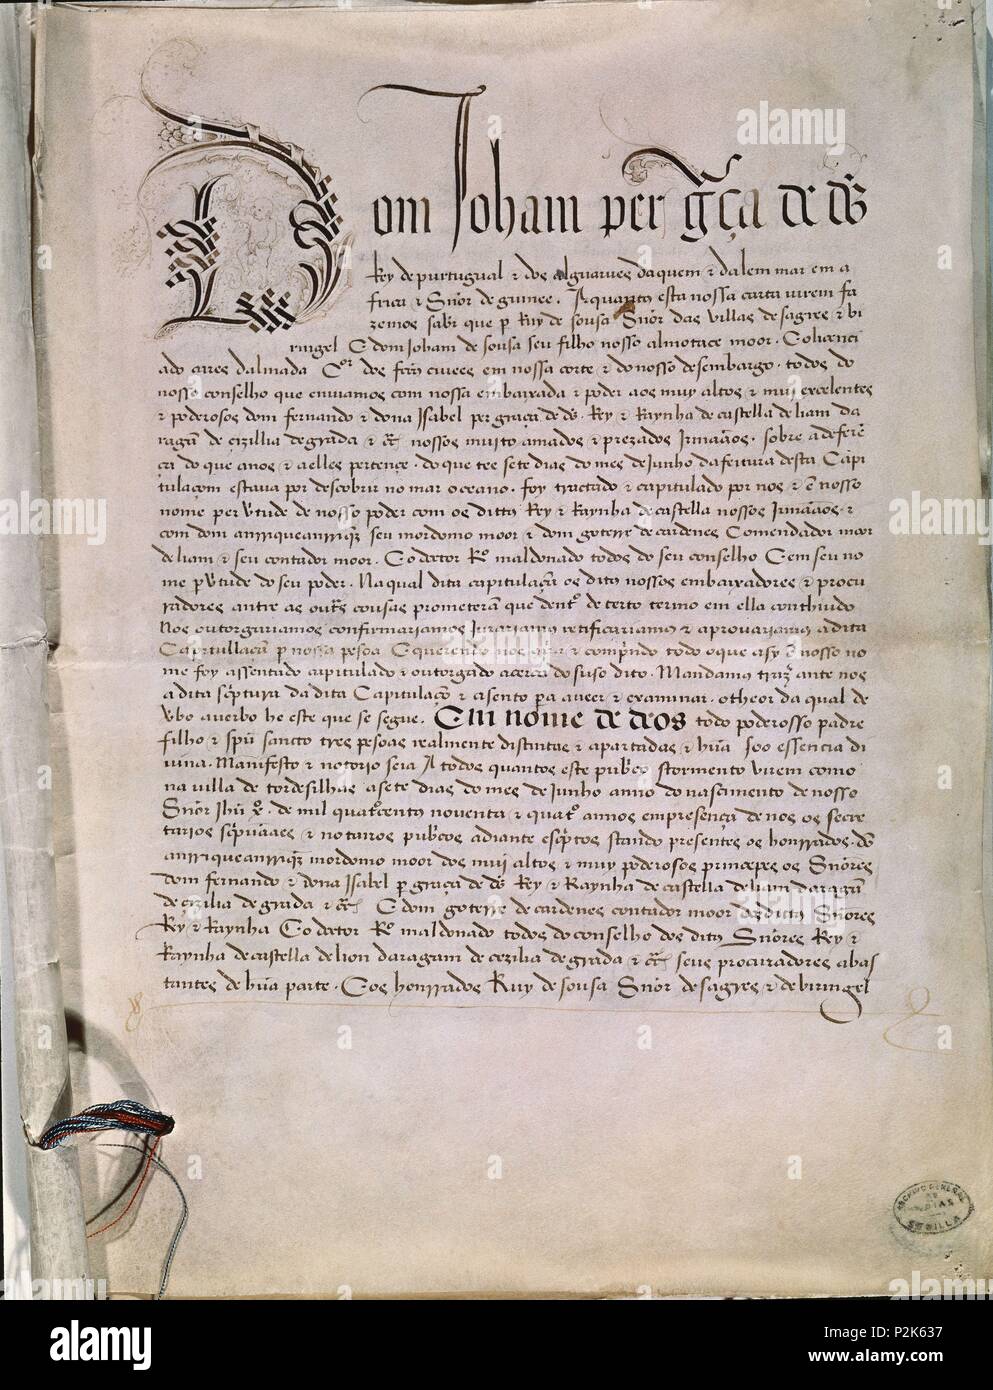 Dom Joham per gr̃ça de ds̃
Rey de purtugual & dos alguarues daquem & dalem mar em a
frica & Sñor de guinee. A quantos esta nossa carta virem fa
zemos sabr que p Ruy de sousa Sñor das villas de sagres & bi
ringel E dom Joham de sousa seu filho nosso almotace moor. E o licenci
ado ayres dalmada Cor dos feitos ciuees em nossa corte & do nosso desembargo. todos do
nosso conselho que enviamos com nossa embaixada & poder aos muy altos & muj excelentes
& poderosos dom fernando & dona Isabel per graça de ds̃. Rey & Raynha de castella de liam da
ragam de cizillia de grada & c̃. nossos muito amados & prezados Irmãaos. sobre a defere͂
ça do que a nos & a elles pertençe. do que tee sete dias do mes de Junho da feitura desta Capi
tulaçom estaua por descobrir no mar oceano. foy tractado & capitulado por nos & e͂ nosso
nome per vertude de nosso poder com os dittos Rey & Raynha de castella nossos Irmãaos. &
com dom anrrique anrriqz seu mordomo moor & dom goterre de cardenes Comendador moor
de liam & seu contador moor. E o doctor Ro maldonado todos do seu conselho E em seu no
me p vertude do seu poder. Na qual dita capitulaçã os ditos nossos embaixadores & procu
radores antre as outras cousas prometeram que dentro de certo termo em ella conthiudo
Nos outorguariamos confirmariamos Jurariamos retificariamos & aprouariamos a dita
Capitullaçã p nossa pesoa E querendo nos & comprindo todo o que asy e͂ nosso no
me foy assentado capitulado & outorgado acerca do suso dito. Mandamos trazer ante nos
a dita scriptura da dita Capitulaçã & asento pera a veer & examinar. o theor da qual de
vbo a verbo he este que se segue. Em nome de deos todo poderosso padre
filho & spũ sancto tres pesoas realmente distintas & apartadas & hũa soo essencia di
uina. Manifesto & notorio seia A todos quantos este publico stormento virem como
na villa de tordesilhas a sete dias do mes de Junho anno do nascimento de nosso
Sñor Jhũ xo. de mil quatrocentos nouenta & quatro annos em presença de nos os secre
tarios scripuãaes & notairos publicos adiante escriptos stando presentes os honrrados. dõ
anrrique anrriqz mordomo moor dos muj altos & muy poderosos princepes os Sñores
dom fernando & dona Isabel p graça de ds̃ Rey & Raynha de castella de liam daragam
de cizilia de grada & c̃. E dom goterre de cardenes contador moor dos dittos Sñores
Rey & Raynha E o doctor Ro maldonado todos do conselho dos dittos Sñores Rey &
Raynha de castella de lion daragam de cezilia de grada & c̃. seus procuradores abas
tantes de hũa parte. E os honrrados Ruy de sousa Sñor de sagres & de biringel
ARCHIVO GENERAL
DE
INDIAS
SEVILLA
alamy
P2K637
www.alamy.com